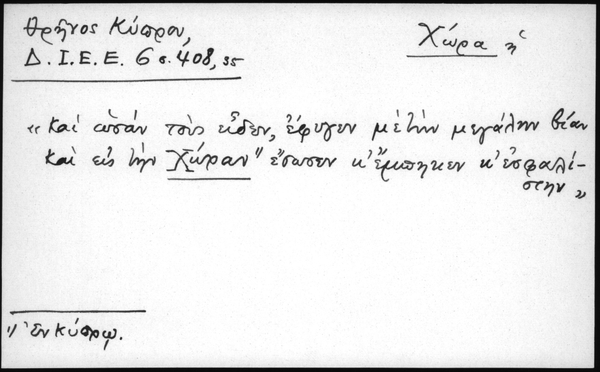 Θρῆνος Κύπρου,
Δ. Ι. Ε. Ε. 6 σ. 408, 35
Χώρα ἡ
«Καὶ ὡσὰν τοὺς εἶδεν, ἔφυγεν μὲ τὴν μεγάλην βίαν
καὶ εἰς τὴν Χώραν¹⁾ ἔσωσεν κ' ἔμπηκεν κ' ἐσφαλί-
στην»
1) Ἐν Κύπρῳ.